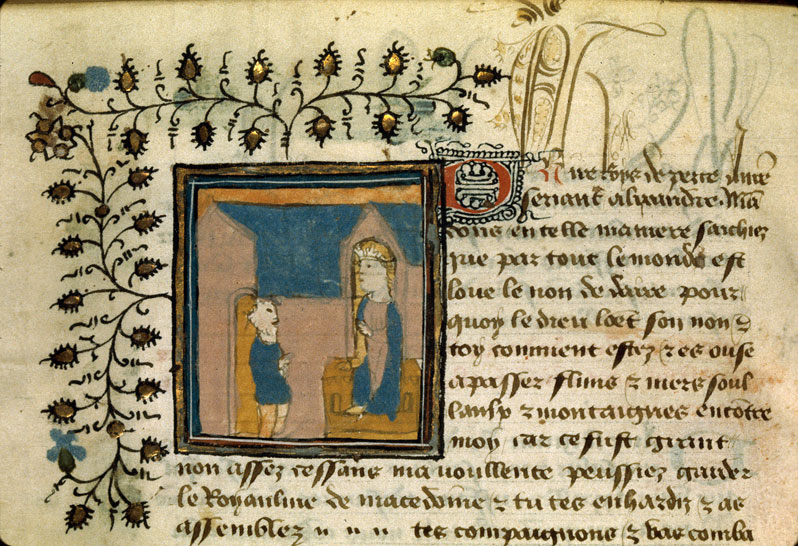 Dire roys de perce a mon
seruant alixandre Ma
dons en telle maniere saichiez
que par tout le monde est
loue le non de daire pour
quoy le dieu loet son non &
toy comment estez & es ouse
apasser fluns & mers soul
laulx & montaignes encõtre
moy car ce fust grant
non assez ce sans ma voullente peussiez garder
le Royaulme de macedome & tu tes enhardiz & as
assemblez n n n tes compaignons & vas comba